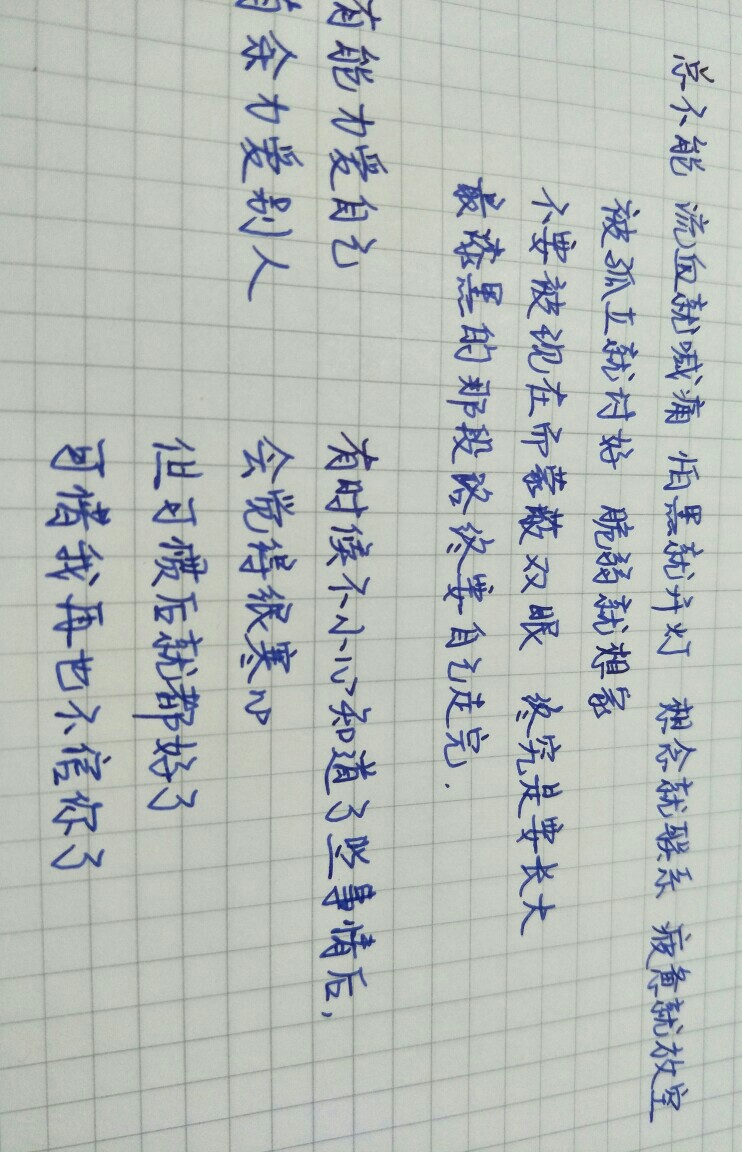 总不能 流血就喊痛 怕黑就开灯 想念就联系 疲惫就放空
被孤立就讨好 脆弱就想家
不要被现在而蒙蔽双眼 终究是要长大
最漆黑的那段路终要自己走完.
有能力爱自己
有余力爱别人
有时候不小心知道了些事情后,
会觉得很寒心
但习惯后就都好了
可惜我再也不信你了